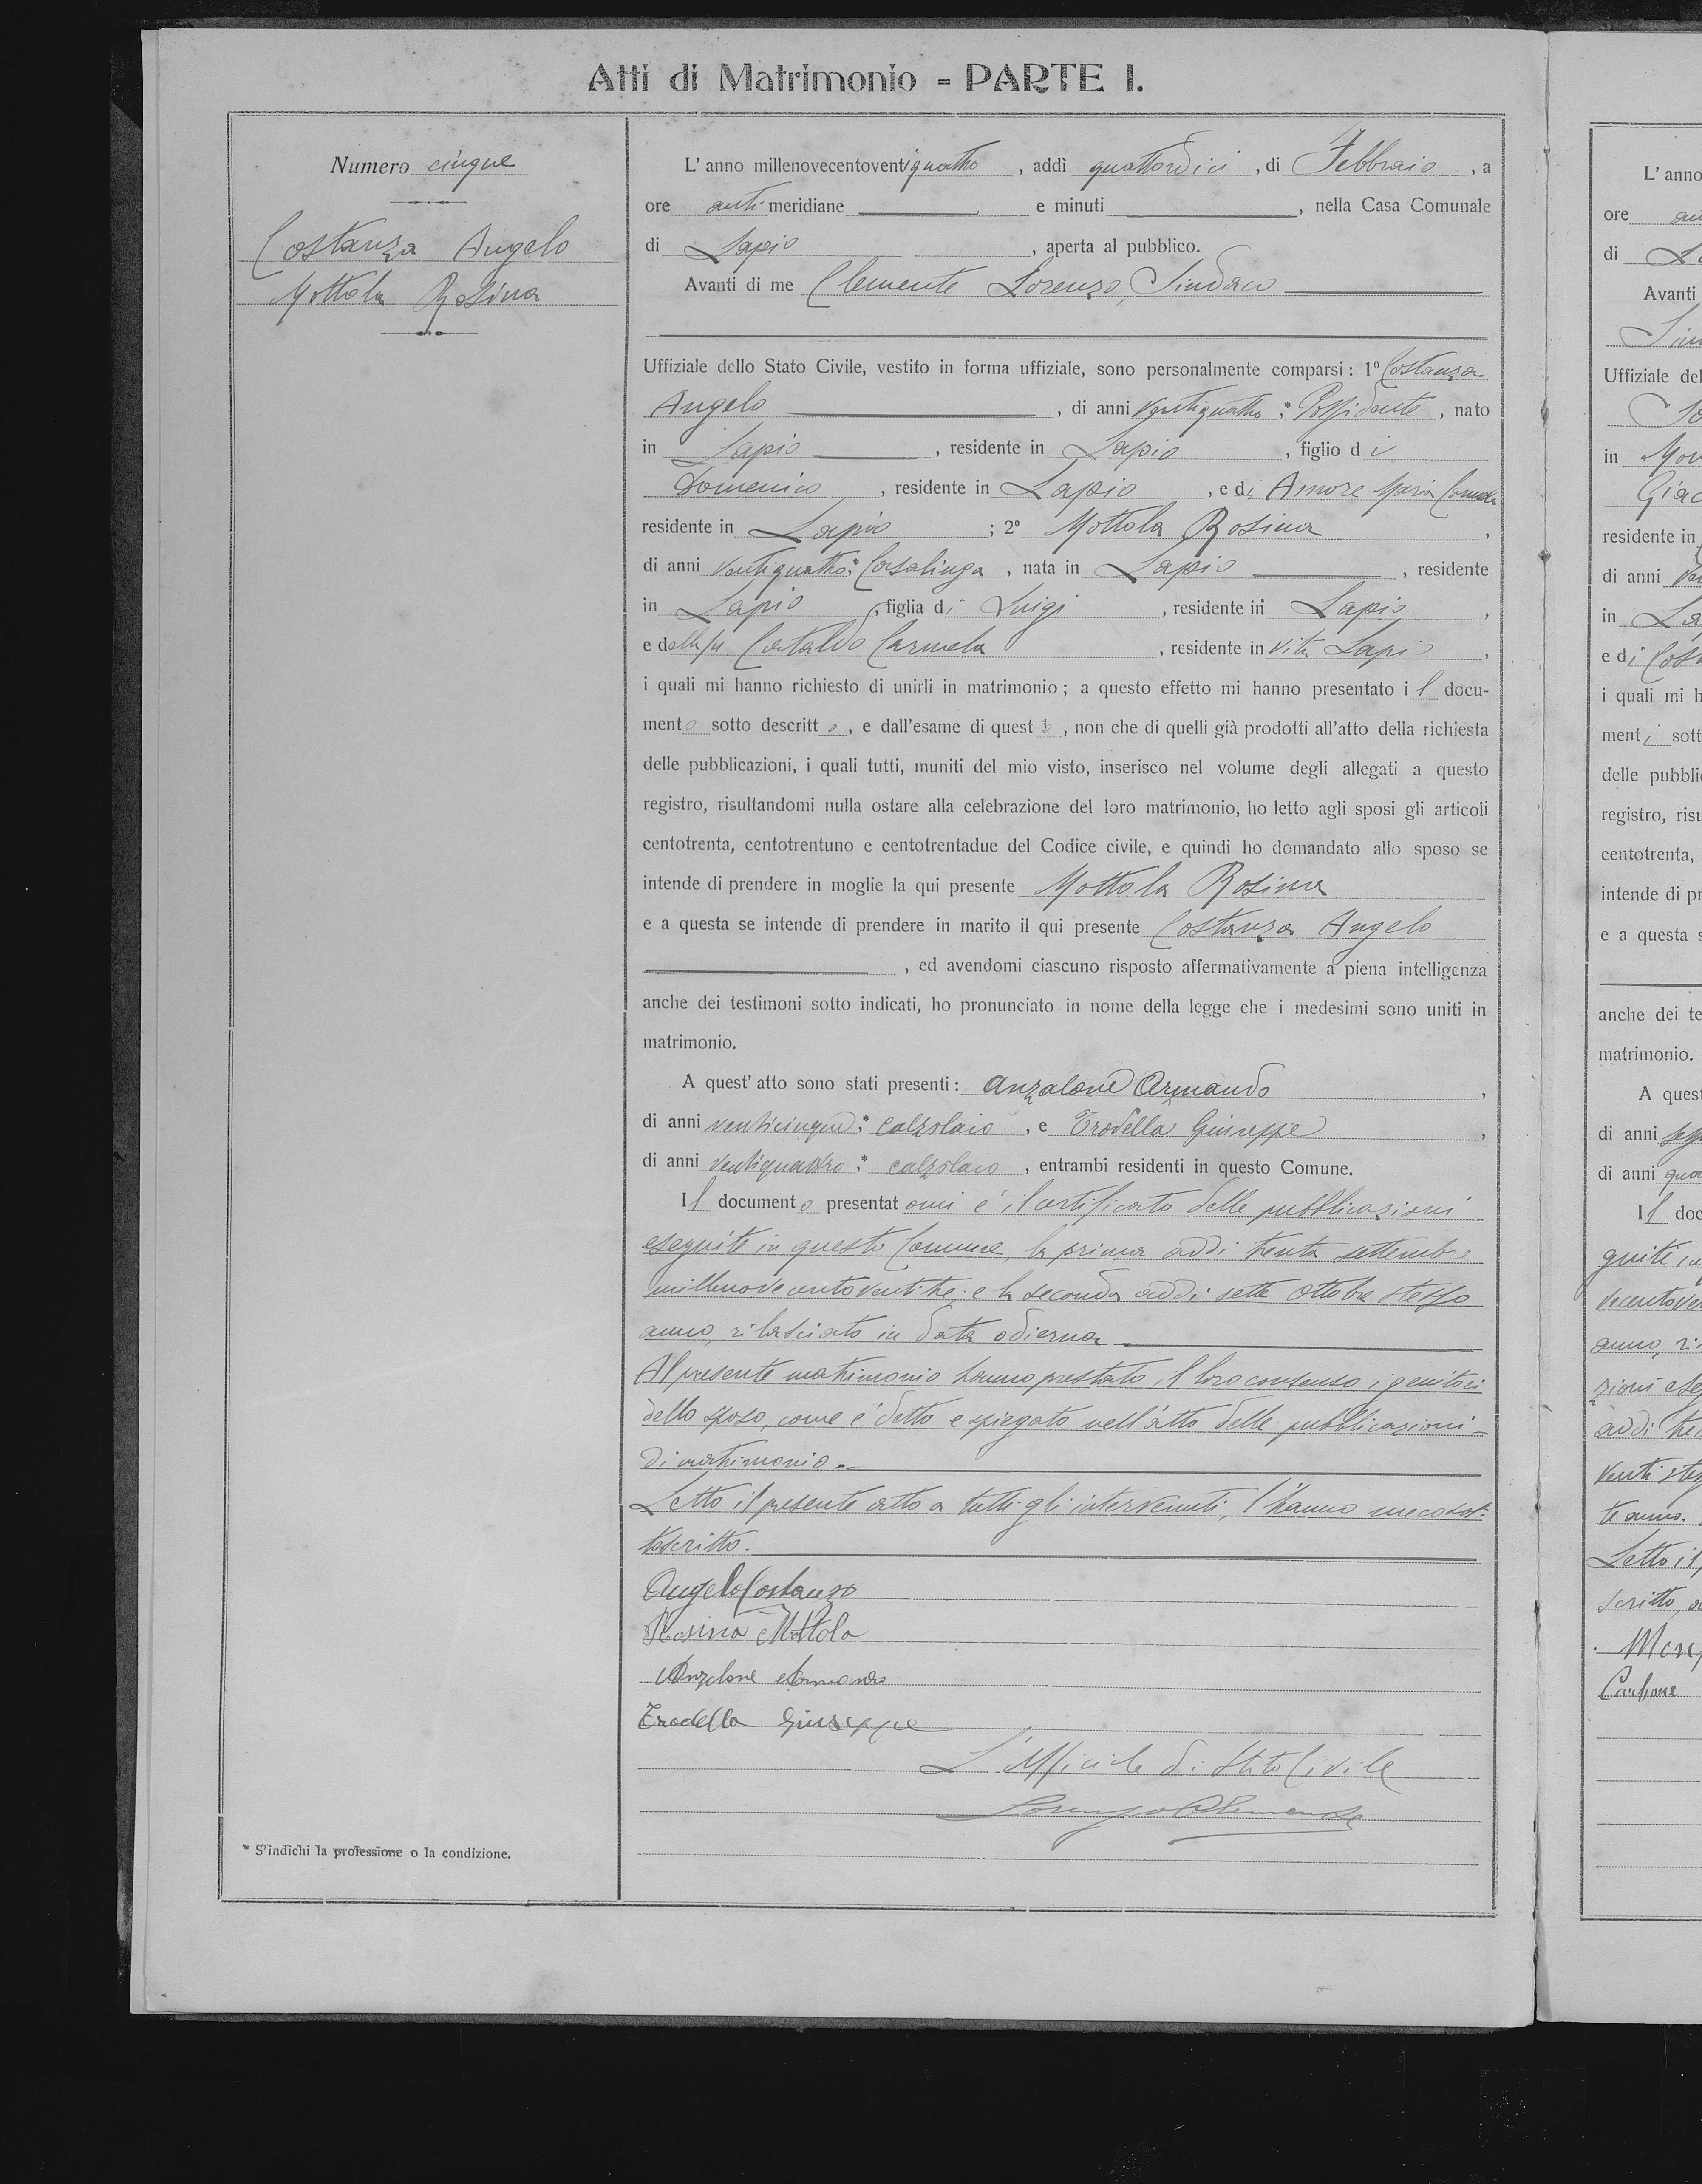 Atti di Matrimonio = PARTE I.
Numero cinque
Costanza Angelo
Mottola Rosina
L' anno millenovecentoventiquattro, addì quattordici, di Febbraio, a
ore antimeridiane e minuti , nella Casa Comunale
di Lapio , aperta al pubblico.
Avanti di me Clemente Lorenzo, Sindaco
Uffiziale dello Stato Civile, vestito in forma uffiziale, sono personalmente comparsi: 1º Costanza
Angelo , di anni ventiquattro:* Possidente, nato
in Lapio , residente in Lapio , figlio di
Domenico , residente in Lapio , e di Amore Maria
residente in Lapio ; 2º Mottola Rosina ,
di anni ventiquattro:* Casalinga , nata in Lapio , residente
in Lapio , figlia di Luigi , residente in Lapio ,
e della fu Cataldo Carmela , residente in vita Lapio ,
i quali mi hanno richiesto di unirli in matrimonio; a questo effetto mi hanno presentato il docu-
mento sotto descritto, e dall'esame di questo, non che di quelli già prodotti all'atto della richiesta
delle pubblicazioni, i quali tutti, muniti del mio visto, inserisco nel volume degli allegati a questo
registro, risultandomi nulla ostare alla celebrazione del loro matrimonio, ho letto agli sposi gli articoli
centotrenta, centotrentuno e centotrentadue del Codice civile, e quindi ho domandato allo sposo se
intende di prendere in moglie la qui presente Mottola Rosina
e a questa se intende di prendere in marito il qui presente Costanza Angelo
, ed avendomi ciascuno risposto affermativamente a piena intelligenza
anche dei testimoni sotto indicati, ho pronunciato in nome della legge che i medesimi sono uniti in
matrimonio.
A quest' atto sono stati presenti: Anzalone Armando ,
di anni venticinque:* calzolaio , e Trodella Giuseppe ,
di anni ventiquattro:* calzolaio , entrambi residenti in questo Comune.
Il documento presentatomi è il certificato delle pubblicazioni
eseguite in questo Comune, la prima addì trenta settembre
millenovecentoventitre, e la seconda addì sette ottobre stesso
anno, rilasciato in data odierna.
Al presente matrimonio hanno prestato il loro consenso i genitori
dello sposo, come è detto e spiegato nell'atto delle pubblicazioni
di matrimonio.
Letto il presente atto a tutti gli intervenuti, l'hanno meco sot-
toscritto.
Angelo Costanzo
Rosina Mottola
Anzalone Armando
Trodella Giuseppe
L'Ufficiale di Stato Civile
Lorenzo Clemente
* S'indichi la professione o la condizione.
L' anno
ore
di
Avanti
Uffiziale del
in
residente in
di anni
in
e di
i quali mi h
menti sott
delle pubbli
registro, risu
centotrenta,
intende di pr
e a questa s
anche dei te
matrimonio.
A quest
di anni
di anni
Il doc
anno,
addì
te anno.
Letto il
Carbone